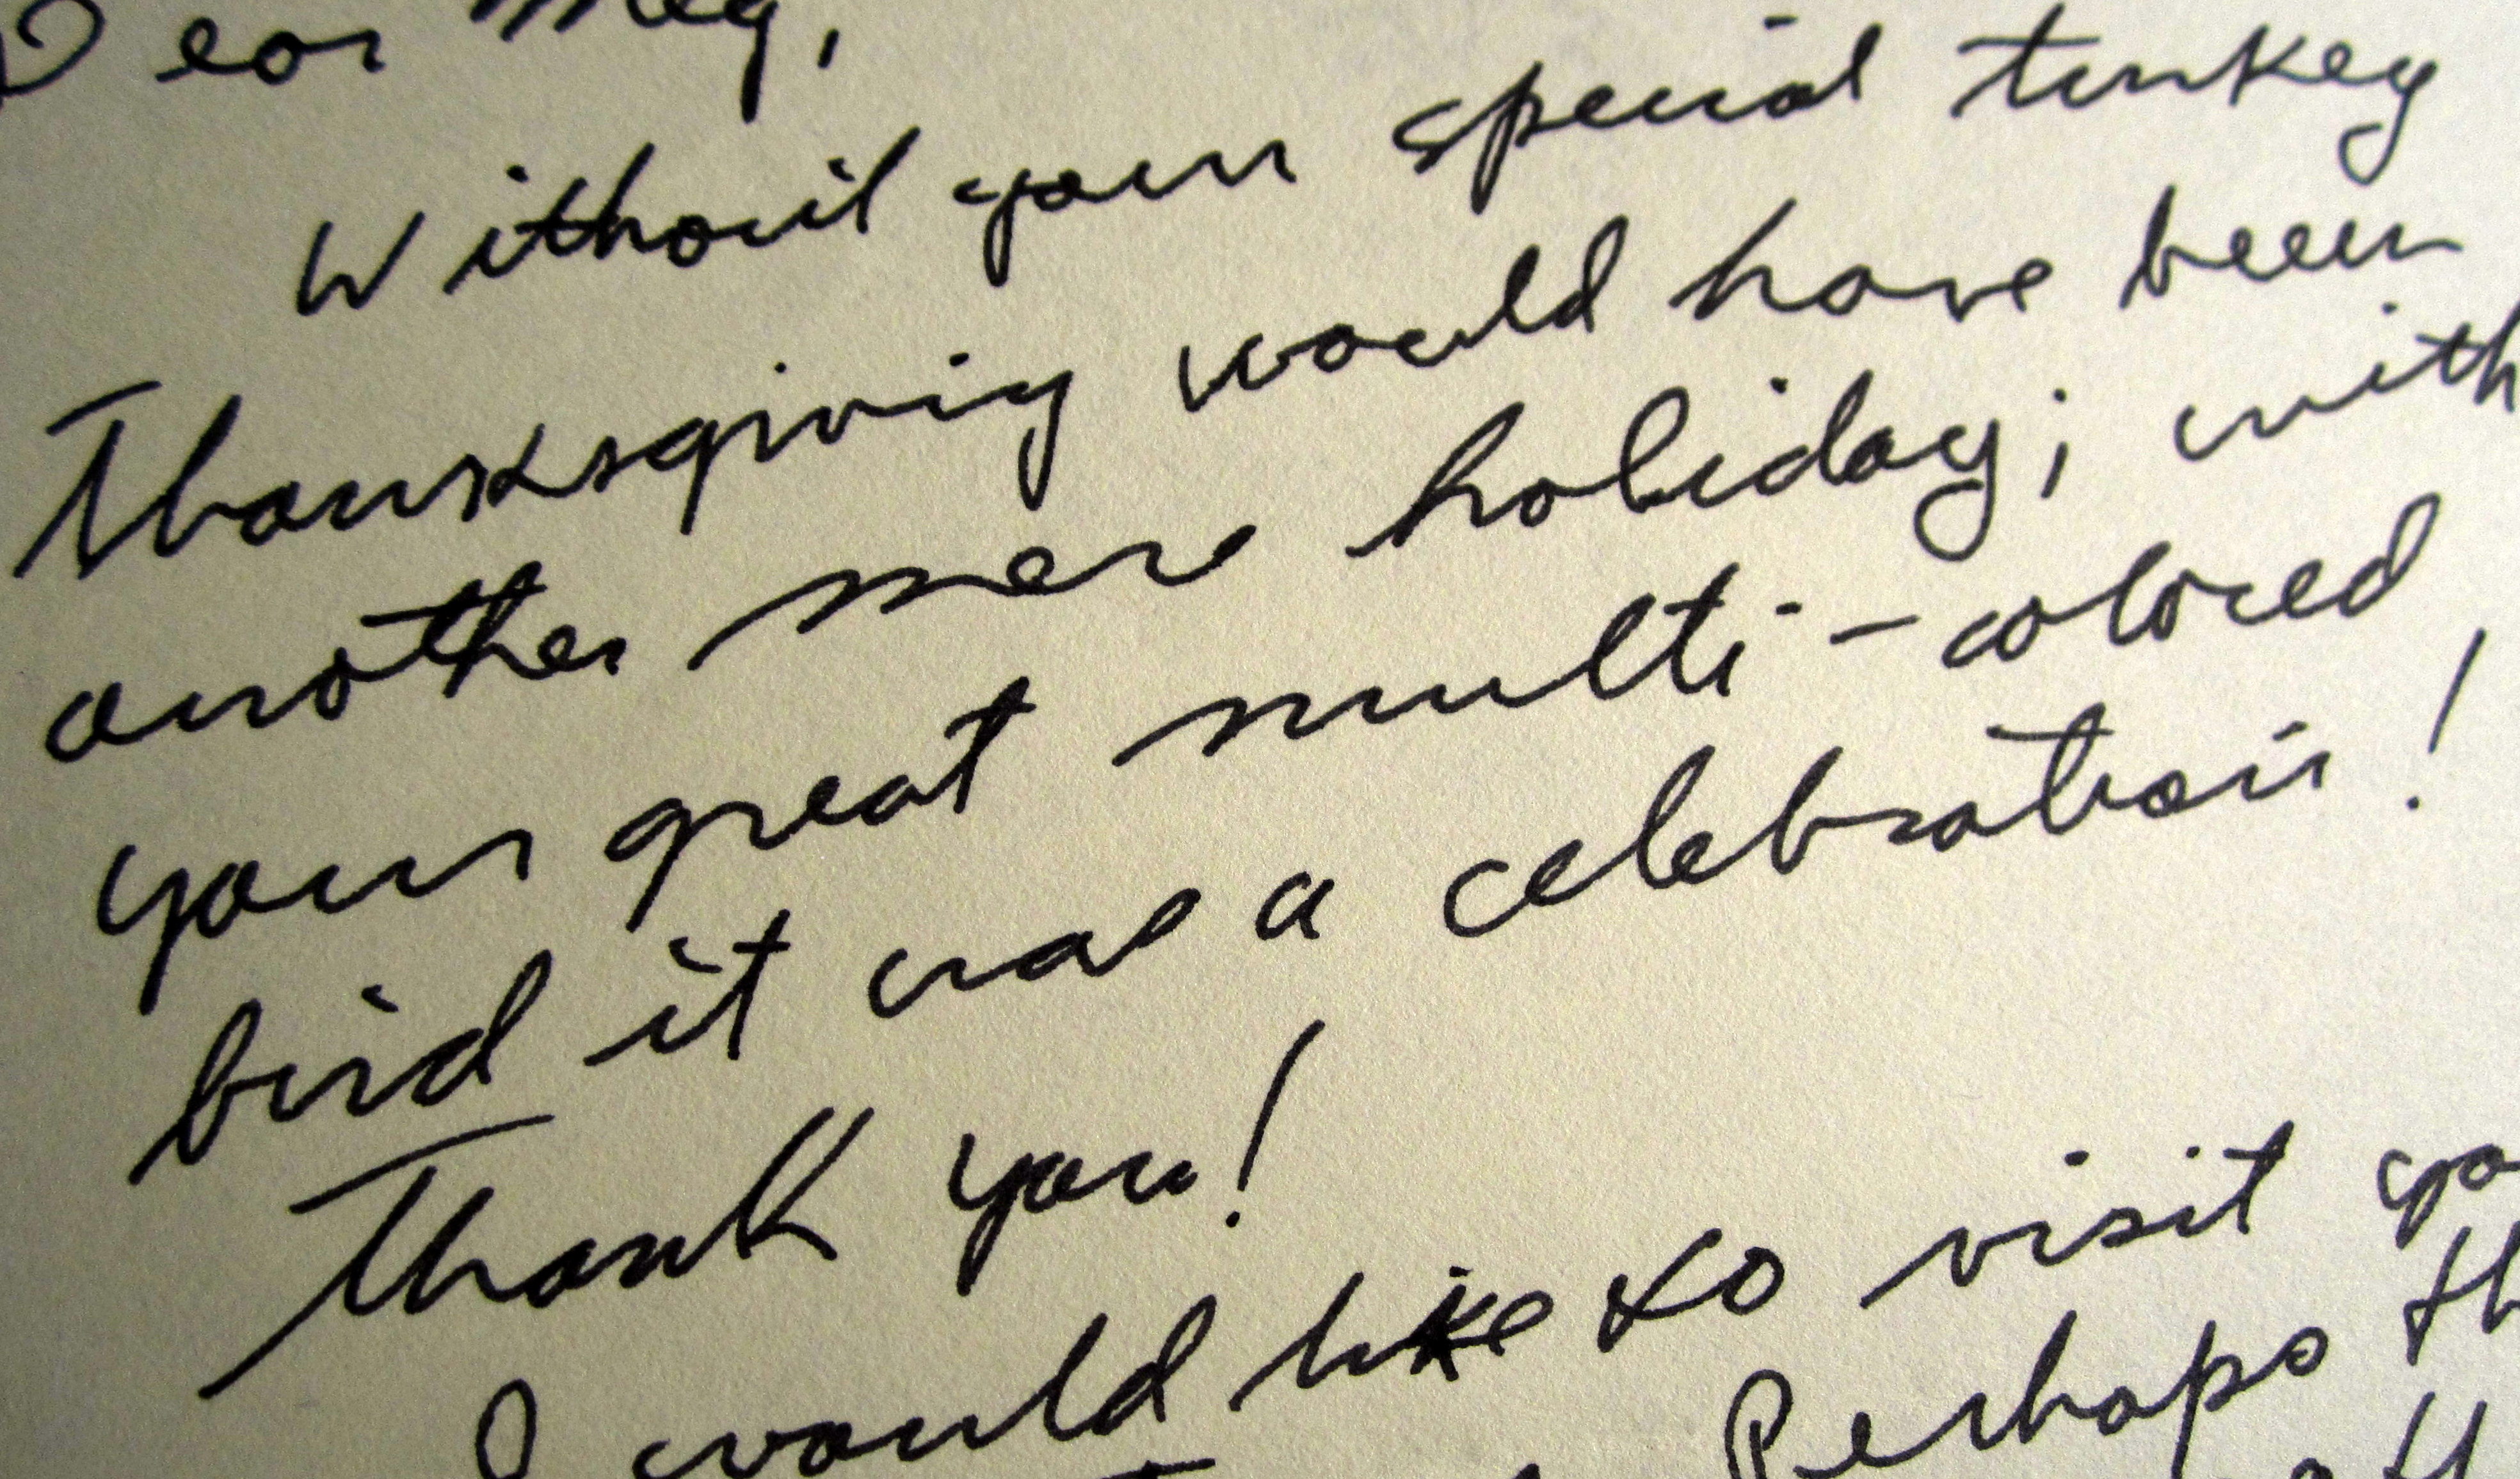 Dear Meg,
Without your special turkey
Thanksgiving would have been
another mere holiday; with
your great multi-colored
bird it was a celebration!
Thank you!
I would like to visit yo
Perhaps th